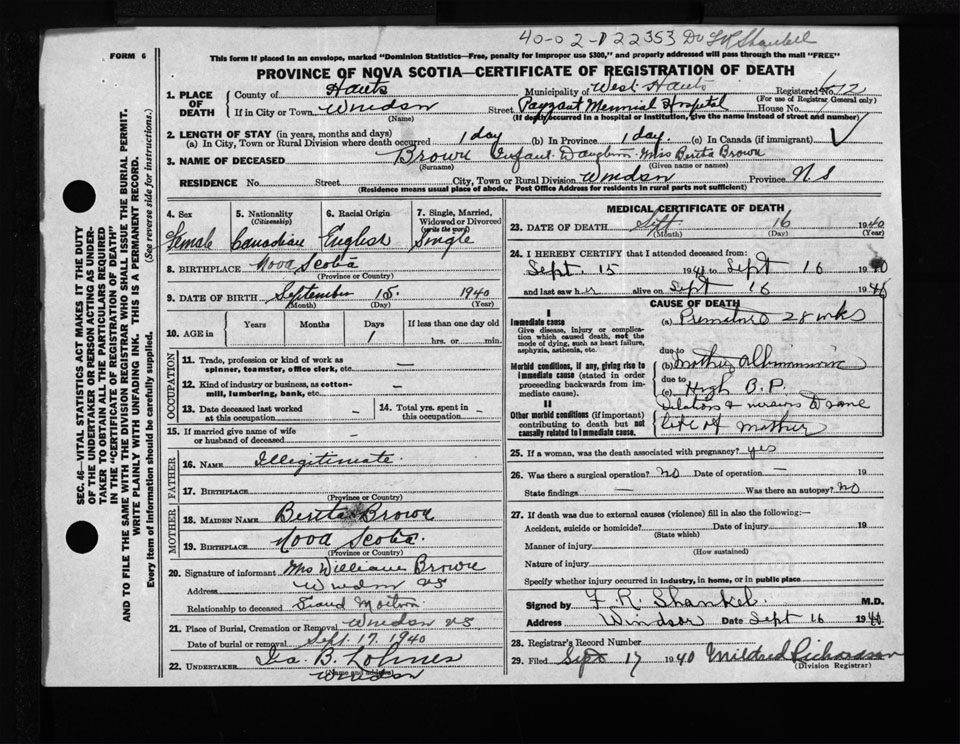 40-02-122353 Dr F R Shankel
FORM 6
This form if placed in an envelope, marked "Dominion Statistics—Free, penalty for improper use $300," and properly addressed will pass through the mail "FREE"
PROVINCE OF NOVA SCOTIA—CERTIFICATE OF REGISTRATION OF DEATH
1. PLACE OF DEATH
County of Hants Municipality of West Hants Registered No. 72
(For use of Registrar General only)
If in City or Town Windsor Street Payzant Memorial Hospital House No.
(Name) (If death occurred in a hospital or institution, give the name instead of street and number)
2. LENGTH OF STAY (in years, months and days)
(a) In City, Town or Rural Division where death occurred 1 day (b) In Province 1 day (c) In Canada (if immigrant)
3. NAME OF DECEASED Brown Infant Daughter Miss Berta Brown
(Surname) (Given name or names)
RESIDENCE No. Street City, Town or Rural Division Windsor Province N S
(Residence means usual place of abode. Post Office Address for residents in rural parts not sufficient)
4. Sex 5. Nationality (Citizenship) 6. Racial Origin 7. Single, Married, Widowed or Divorced (write the word)
Female Canadian English Single
8. BIRTHPLACE Nova Scotia
(Province or Country)
9. DATE OF BIRTH September 15 1940
(Month) (Day) (Year)
10. AGE in Years Months Days If less than one day old
1 hrs. or min.
OCCUPATION
11. Trade, profession or kind of work as spinner, teamster, office clerk, etc. —
12. Kind of industry or business, as cotton-mill, lumbering, bank, etc. —
13. Date deceased last worked at this occupation — 14. Total yrs. spent in this occupation —
15. If married give name of wife or husband of deceased —
FATHER
16. NAME Illegitimate
17. BIRTHPLACE
(Province or Country)
MOTHER
18. MAIDEN NAME Berta Brown
19. BIRTHPLACE Nova Scotia
(Province or Country)
20. Signature of informant Mrs William Brown
Address Windsor NS
Relationship to deceased Grand Mother
21. Place of Burial, Cremation or Removal Windsor NS
Date of burial or removal Sept. 17, 1940
22. UNDERTAKER Ira B. Lohnes
(Name and address)
Windsor
MEDICAL CERTIFICATE OF DEATH
23. DATE OF DEATH Sept 16 1940
(Month) (Day) (Year)
24. I HEREBY CERTIFY that I attended deceased from:
Sept 15 1940 to Sept 16 1940
and last saw her alive on Sept 16 1940
CAUSE OF DEATH
I
Immediate cause
Give disease, injury or complication which caused death, not the mode of dying, such as heart failure, asphyxia, asthenia, etc.
(a) Premature 28 wks
due to
Morbid conditions, if any, giving rise to immediate cause (stated in order proceeding backwards from immediate cause).
(b) Mother Albuminuria
due to
(c) High B.P.
II
Other morbid conditions (if important) contributing to death but not causally related to immediate cause.
to save
life of mother
25. If a woman, was the death associated with pregnancy? yes
26. Was there a surgical operation? no Date of operation —
State findings — Was there an autopsy? no
27. If death was due to external causes (violence) fill in also the following:—
Accident, suicide or homicide? Date of injury 19
(State which)
Manner of injury
(How sustained)
Nature of injury
Specify whether injury occurred in industry, in home, or in public place
Signed by F. R. Shankel M.D.
Address Windsor Date Sept 16 1940
28. Registrar's Record Number
29. Filed Sept 17 1940 Mildred Richardson
(Division Registrar)
SEC. 46—VITAL STATISTICS ACT MAKES IT THE DUTY
OF THE UNDERTAKER OR PERSON ACTING AS UNDER-
TAKER TO OBTAIN ALL THE PARTICULARS REQUIRED
IN THE "CERTIFICATE OF REGISTRATION OF DEATH"
AND TO FILE THE SAME WITH THE DIVISION REGISTRAR WHO SHALL ISSUE THE BURIAL PERMIT.
WRITE PLAINLY WITH UNFADING INK. THIS IS A PERMANENT RECORD.
Every item of information should be carefully supplied. (See reverse side for instructions.)